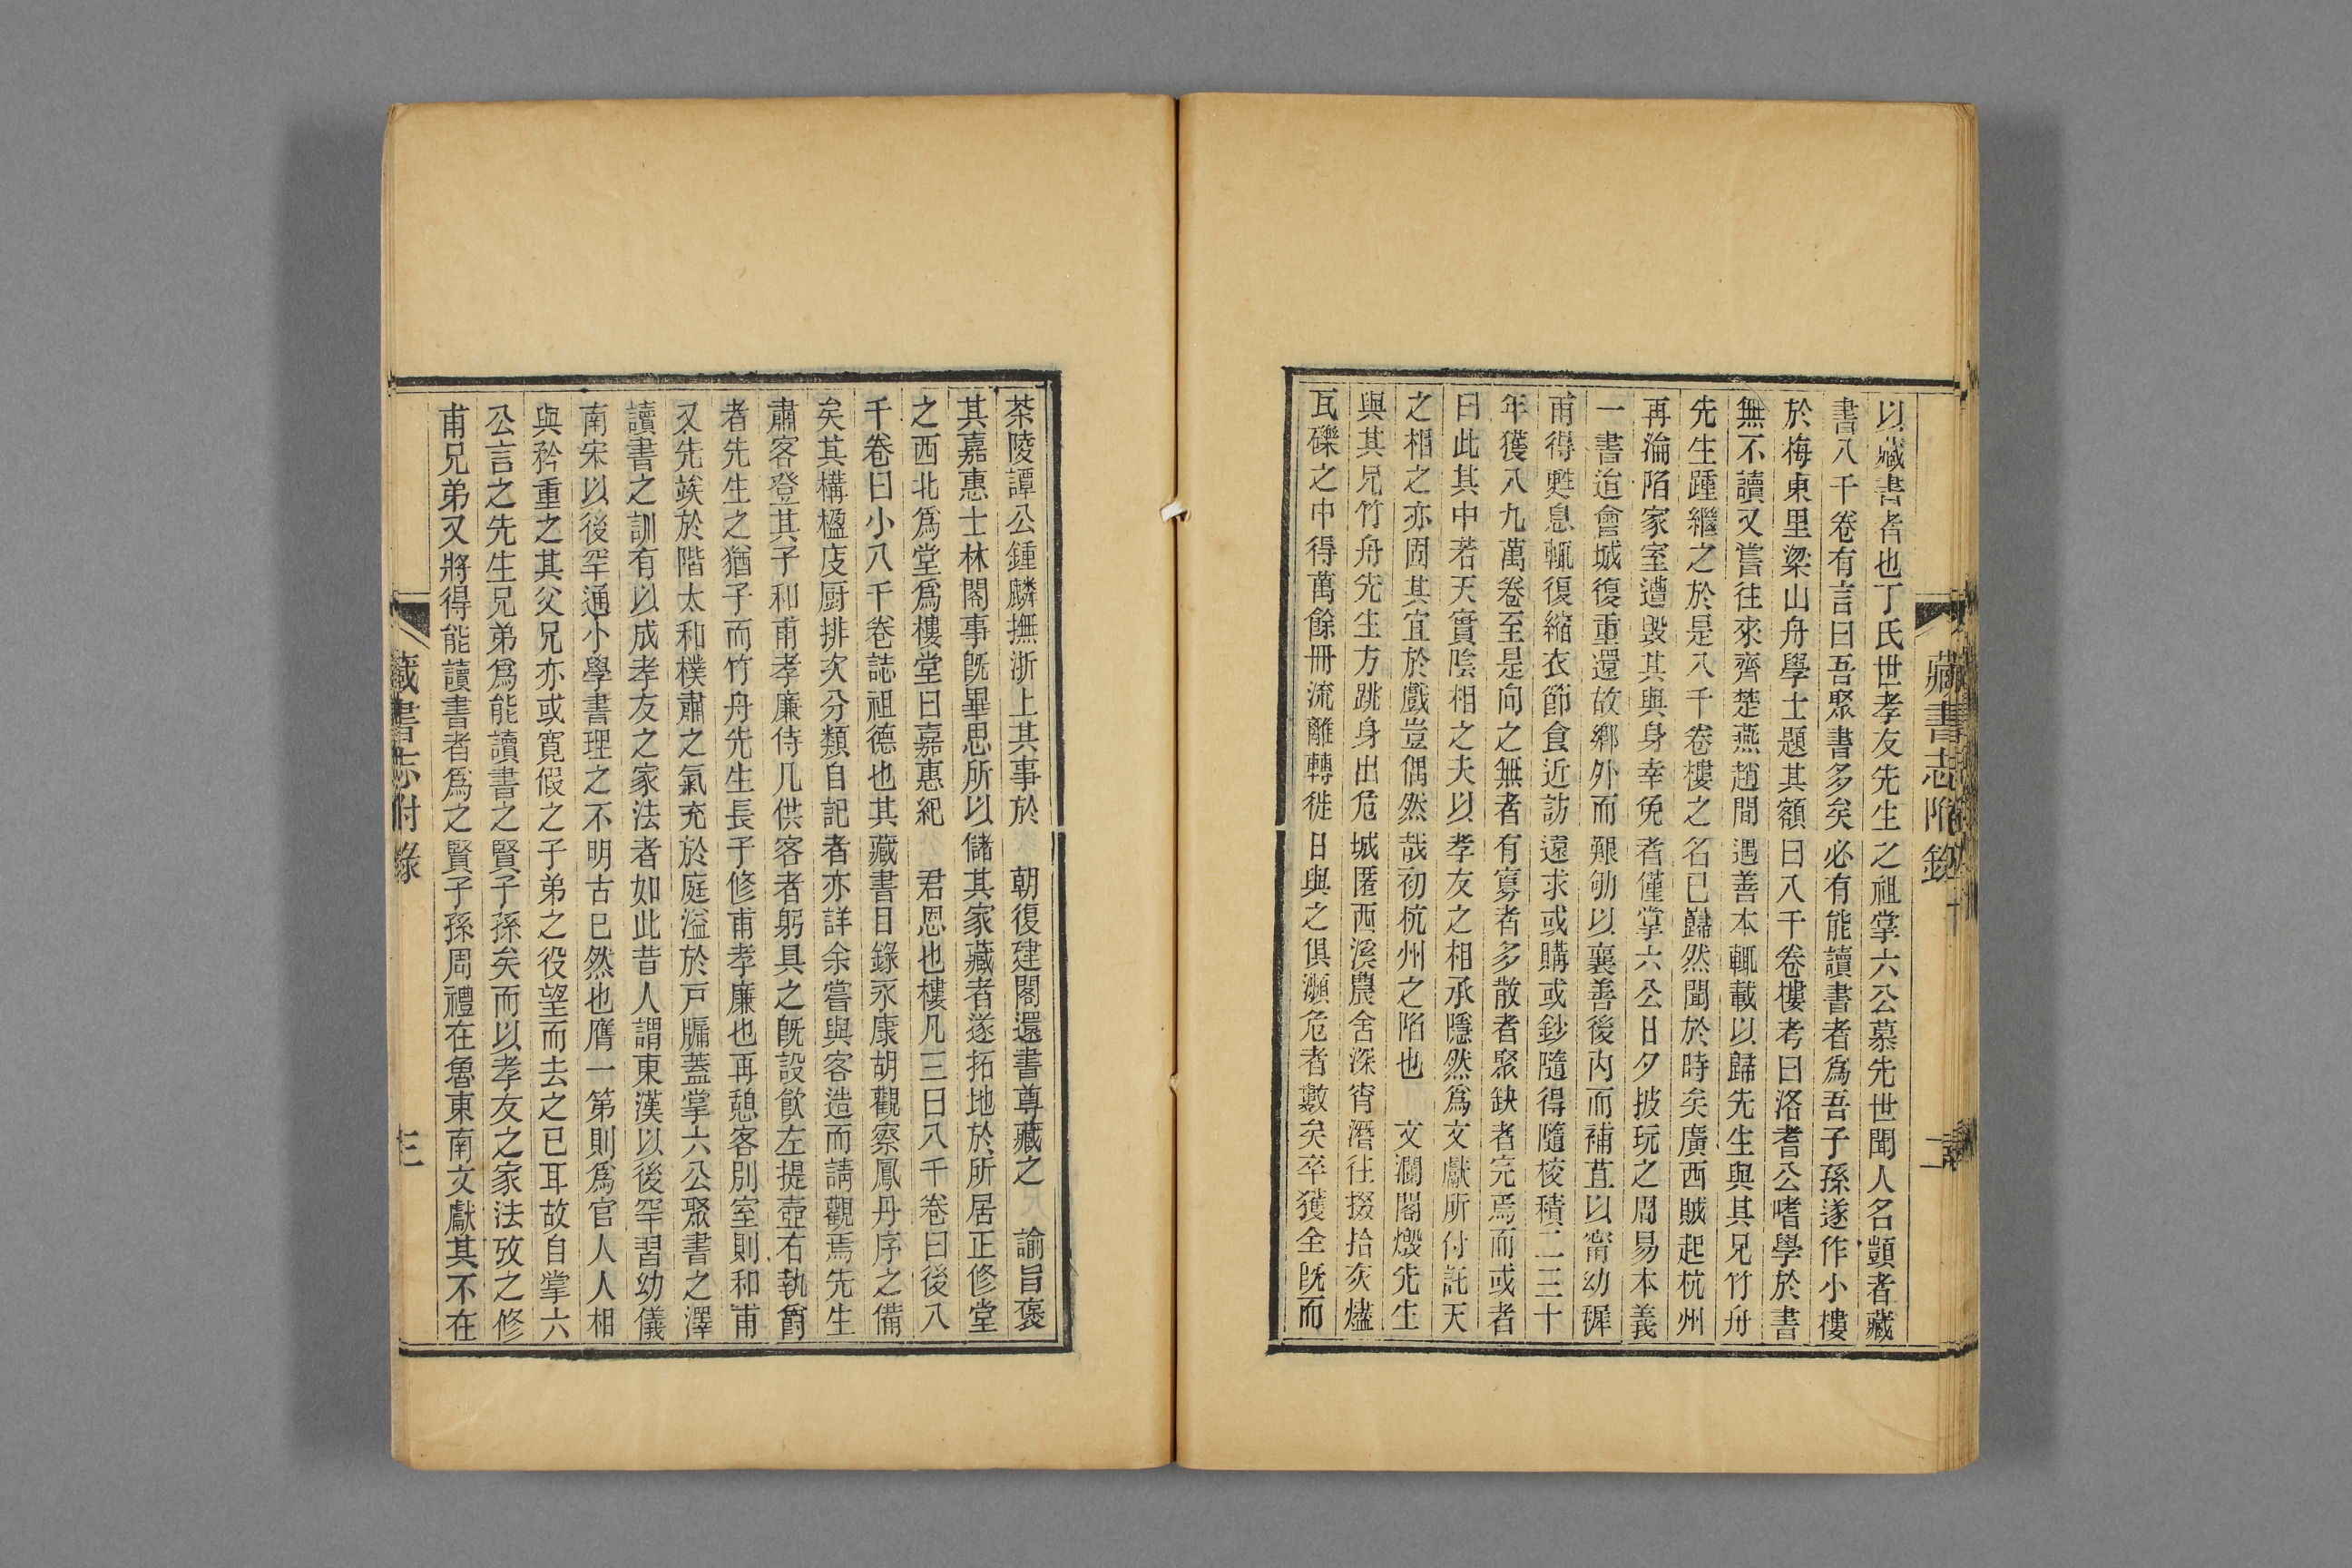 藏書志附錄
二
以藏書者也丁氏世孝友先生之祖掌六公慕先世聞人名顗者藏
書八千卷有言曰吾聚書多矣必有能讀書者爲吾子孫遂作小樓
於梅東里梁山舟學士題其額曰八千卷樓考曰洛耆公嗜學於書
無不讀又嘗往來齊楚燕趙間遇善本輒載以歸先生與其兄竹舟
先生踵繼之於是八千卷樓之名已巋然聞於時矣廣西賊起杭州
再淪陷家室遭毀其與身幸免者僅掌六公日夕披玩之周易本義
一書迨會城復重還故鄉外而艱劬以襄善後內而補苴以甯幼穉
甫得甦息輒復縮衣節食近訪遠求或購或鈔隨得隨棱積二三十
年獲八九萬卷至是向之無者有寡者多散者聚缺者完焉而或者
曰此其中若天實陰相之夫以孝友之相承隱然爲文獻所付託天
之相之亦固其宜於戲豈偶然哉初杭州之陷也　文瀾閣燬先生
與其兄竹舟先生方跳身出危城匿西溪農舍深宵潛往掇拾灰燼
瓦礫之中得萬餘冊流離轉徙日與之俱瀕危者數矣卒獲全旣而
茶陵譚公鍾麟撫浙上其事於　朝復建閣還書尊藏之　諭旨褒
其嘉惠士林閣事旣畢思所以儲其家藏者遂拓地於所居正修堂
之西北爲堂爲樓堂曰嘉惠紀　君恩也樓凡三曰八千卷曰後八
千卷曰小八千卷誌祖德也其藏書目錄永康胡觀察鳳丹序之備
矣其構楹庋厨排次分類自記者亦詳余嘗與客造而請觀焉先生
肅客登其子和甫孝廉侍几供客者躬具之旣設飲左提壺右執爵
者先生之猶子而竹舟先生長子修甫孝廉也再憩客別室則和甫
又先竢於階太和樸肅之氣充於庭溢於戶牖蓋掌六公聚書之澤
讀書之訓有以成孝友之家法者如此昔人謂東漢以後罕習幼儀
南宋以後罕通小學書理之不明古已然也膺一第則爲官人人相
與矜重之其父兄亦或寬假之子弟之役望而去之已耳故自掌六
公言之先生兄弟爲能讀書之賢子孫矣而以孝友之家法攷之修
甫兄弟又將得能讀書者爲之賢子孫周禮在魯東南文獻其不在
藏書志附錄
三